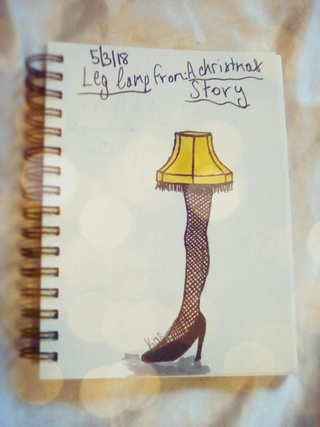 5/3/18
Leg lamp from: A christmas
Story